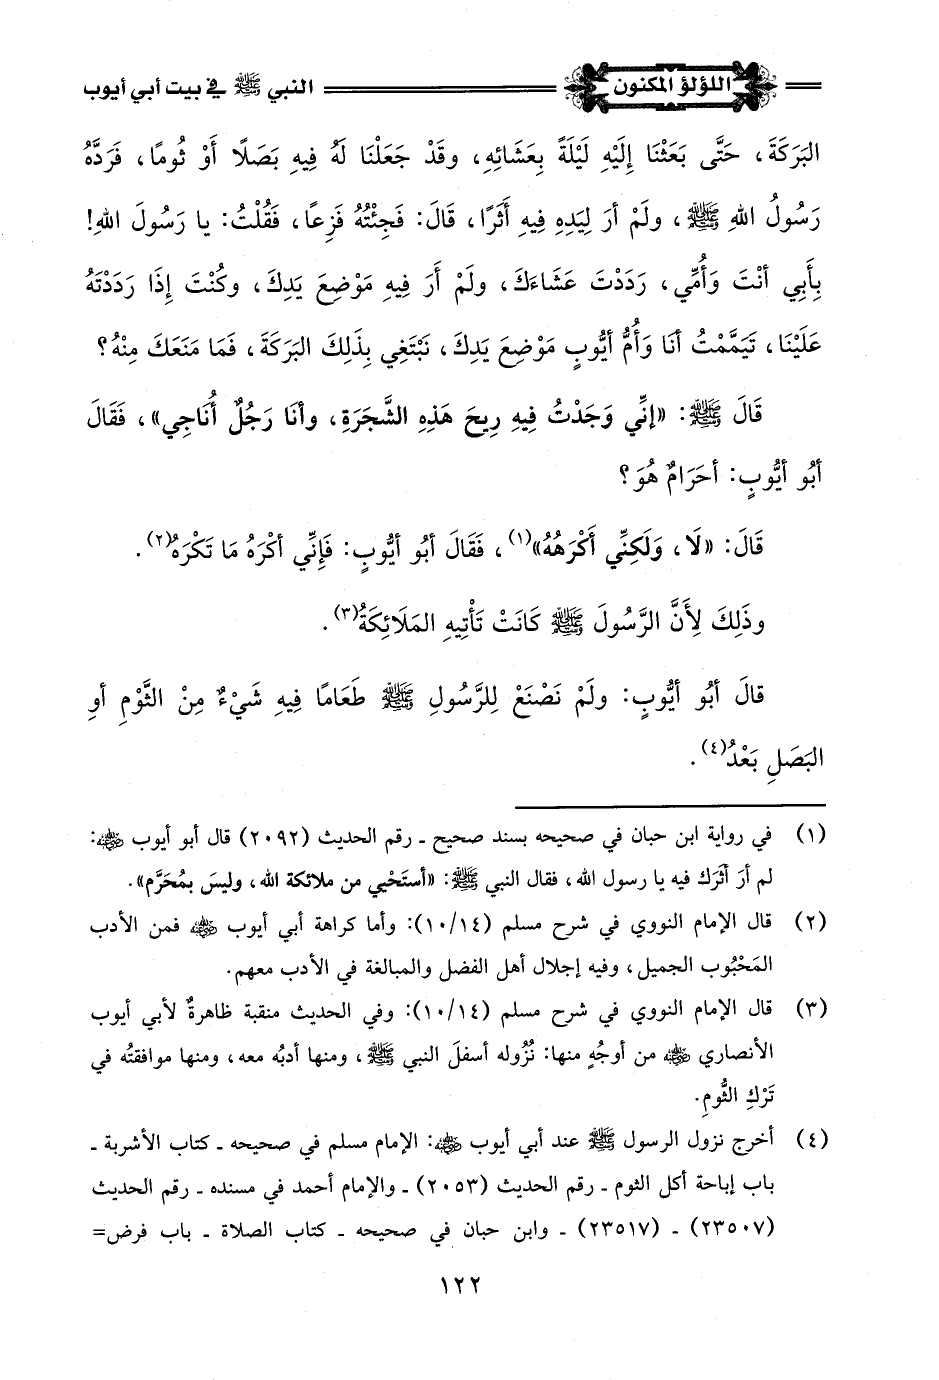 اللؤلؤ المكنون
النبي ﷺ في بيت أبي أيوب
البَرَكَةَ، حَتَّى بَعَثْنَا إِلَيْهِ لَيْلَةً بِعَشَائِهِ، وقَدْ جَعَلْنَا لَهُ فِيهِ بَصَلًا أَوْ ثُومًا، فَرَدَّهُ
رَسُولُ اللهِ ﷺ، ولَمْ أرَ لِيَدِهِ فِيهِ أَثَرًا، قَالَ: فَجِئْتُهُ فَزِعًا، فَقُلْتُ: يا رَسُولَ اللهِ!
بِأَبِي أنْتَ وَأُمِّي، رَدَدْتَ عَشَاءَكَ، ولَمْ أَرَ فِيهِ مَوْضِعَ يَدِكَ، وكُنْتَ إِذَا رَدَدْتَهُ
عَلَيْنَا، تَيَمَّمْتُ أنَا وَأُمُّ أيُّوبٍ مَوْضِعَ يَدِكَ، نَبْتَغِي بِذَلِكَ البَرَكَةَ، فَمَا مَنَعَكَ مِنْهُ؟
قَالَ ﷺ: «إنِّي وَجَدْتُ فِيهِ رِيحَ هَذِهِ الشَّجَرَةِ، وأنَا رَجُلٌ أُنَاجِي»، فَقَالَ
أبُو أيُّوبٍ: أحَرَامٌ هُوَ؟
قَالَ: «لَا، وَلَكِنِّي أَكْرَهُهُ»(١)، فَقَالَ أبُو أيُّوبٍ: فَإِنِّي أكْرَهُ مَا تَكْرَهُ(٢).
وذَلِكَ لِأَنَّ الرَّسُولَ ﷺ كَانَتْ تَأْتِيهِ المَلَائِكَةُ(٣).
قالَ أبُو أيُّوبٍ: ولَمْ نَصْنَعْ لِلرَّسُولِ ﷺ طَعَامًا فِيهِ شَيْءٌ مِنْ الثَّوْمِ أوِ
البَصَلِ بَعْدُ(٤).
(١) في رواية ابن حبان في صحيحه بسند صحيح ـ رقم الحديث (٢٠٩٢) قال أبو أيوب رضي الله عنه:
لم أرَ أثَرَك فيه يا رسول الله، فقال النبي ﷺ: «أستَحْيي من ملائكة الله، وليسَ بمُحَرَّم».
(٢) قال الإمام النووي في شرح مسلم (١٠/١٤): وأما كراهة أبي أيوب رضي الله عنه فمن الأدب
المَحْبُوب الجميل، وفيه إجلال أهل الفضل والمبالغة في الأدب معهم.
(٣) قال الإمام النووي في شرح مسلم (١٠/١٤): وفي الحديث منقبة ظاهرةٌ لأبي أيوب
الأنصاري رضي الله عنه من أوجُهٍ منها: نُزُوله أسفلَ النبي ﷺ، ومنها أدبُه معه، ومنها موافقتُه في
تَرْكِ الثُّومِ.
(٤) أخرج نزول الرسول ﷺ عند أبي أيوب رضي الله عنه: الإمام مسلم في صحيحه ـ كتاب الأشربة ـ
باب إباحة أكل الثوم ـ رقم الحديث (٢٠٥٣) ـ والإمام أحمد في مسنده ـ رقم الحديث
(٢٣٥٠٧) ـ (٢٣٥١٧) ـ وابن حبان في صحيحه ـ كتاب الصلاة ـ باب فرض=
١٢٢